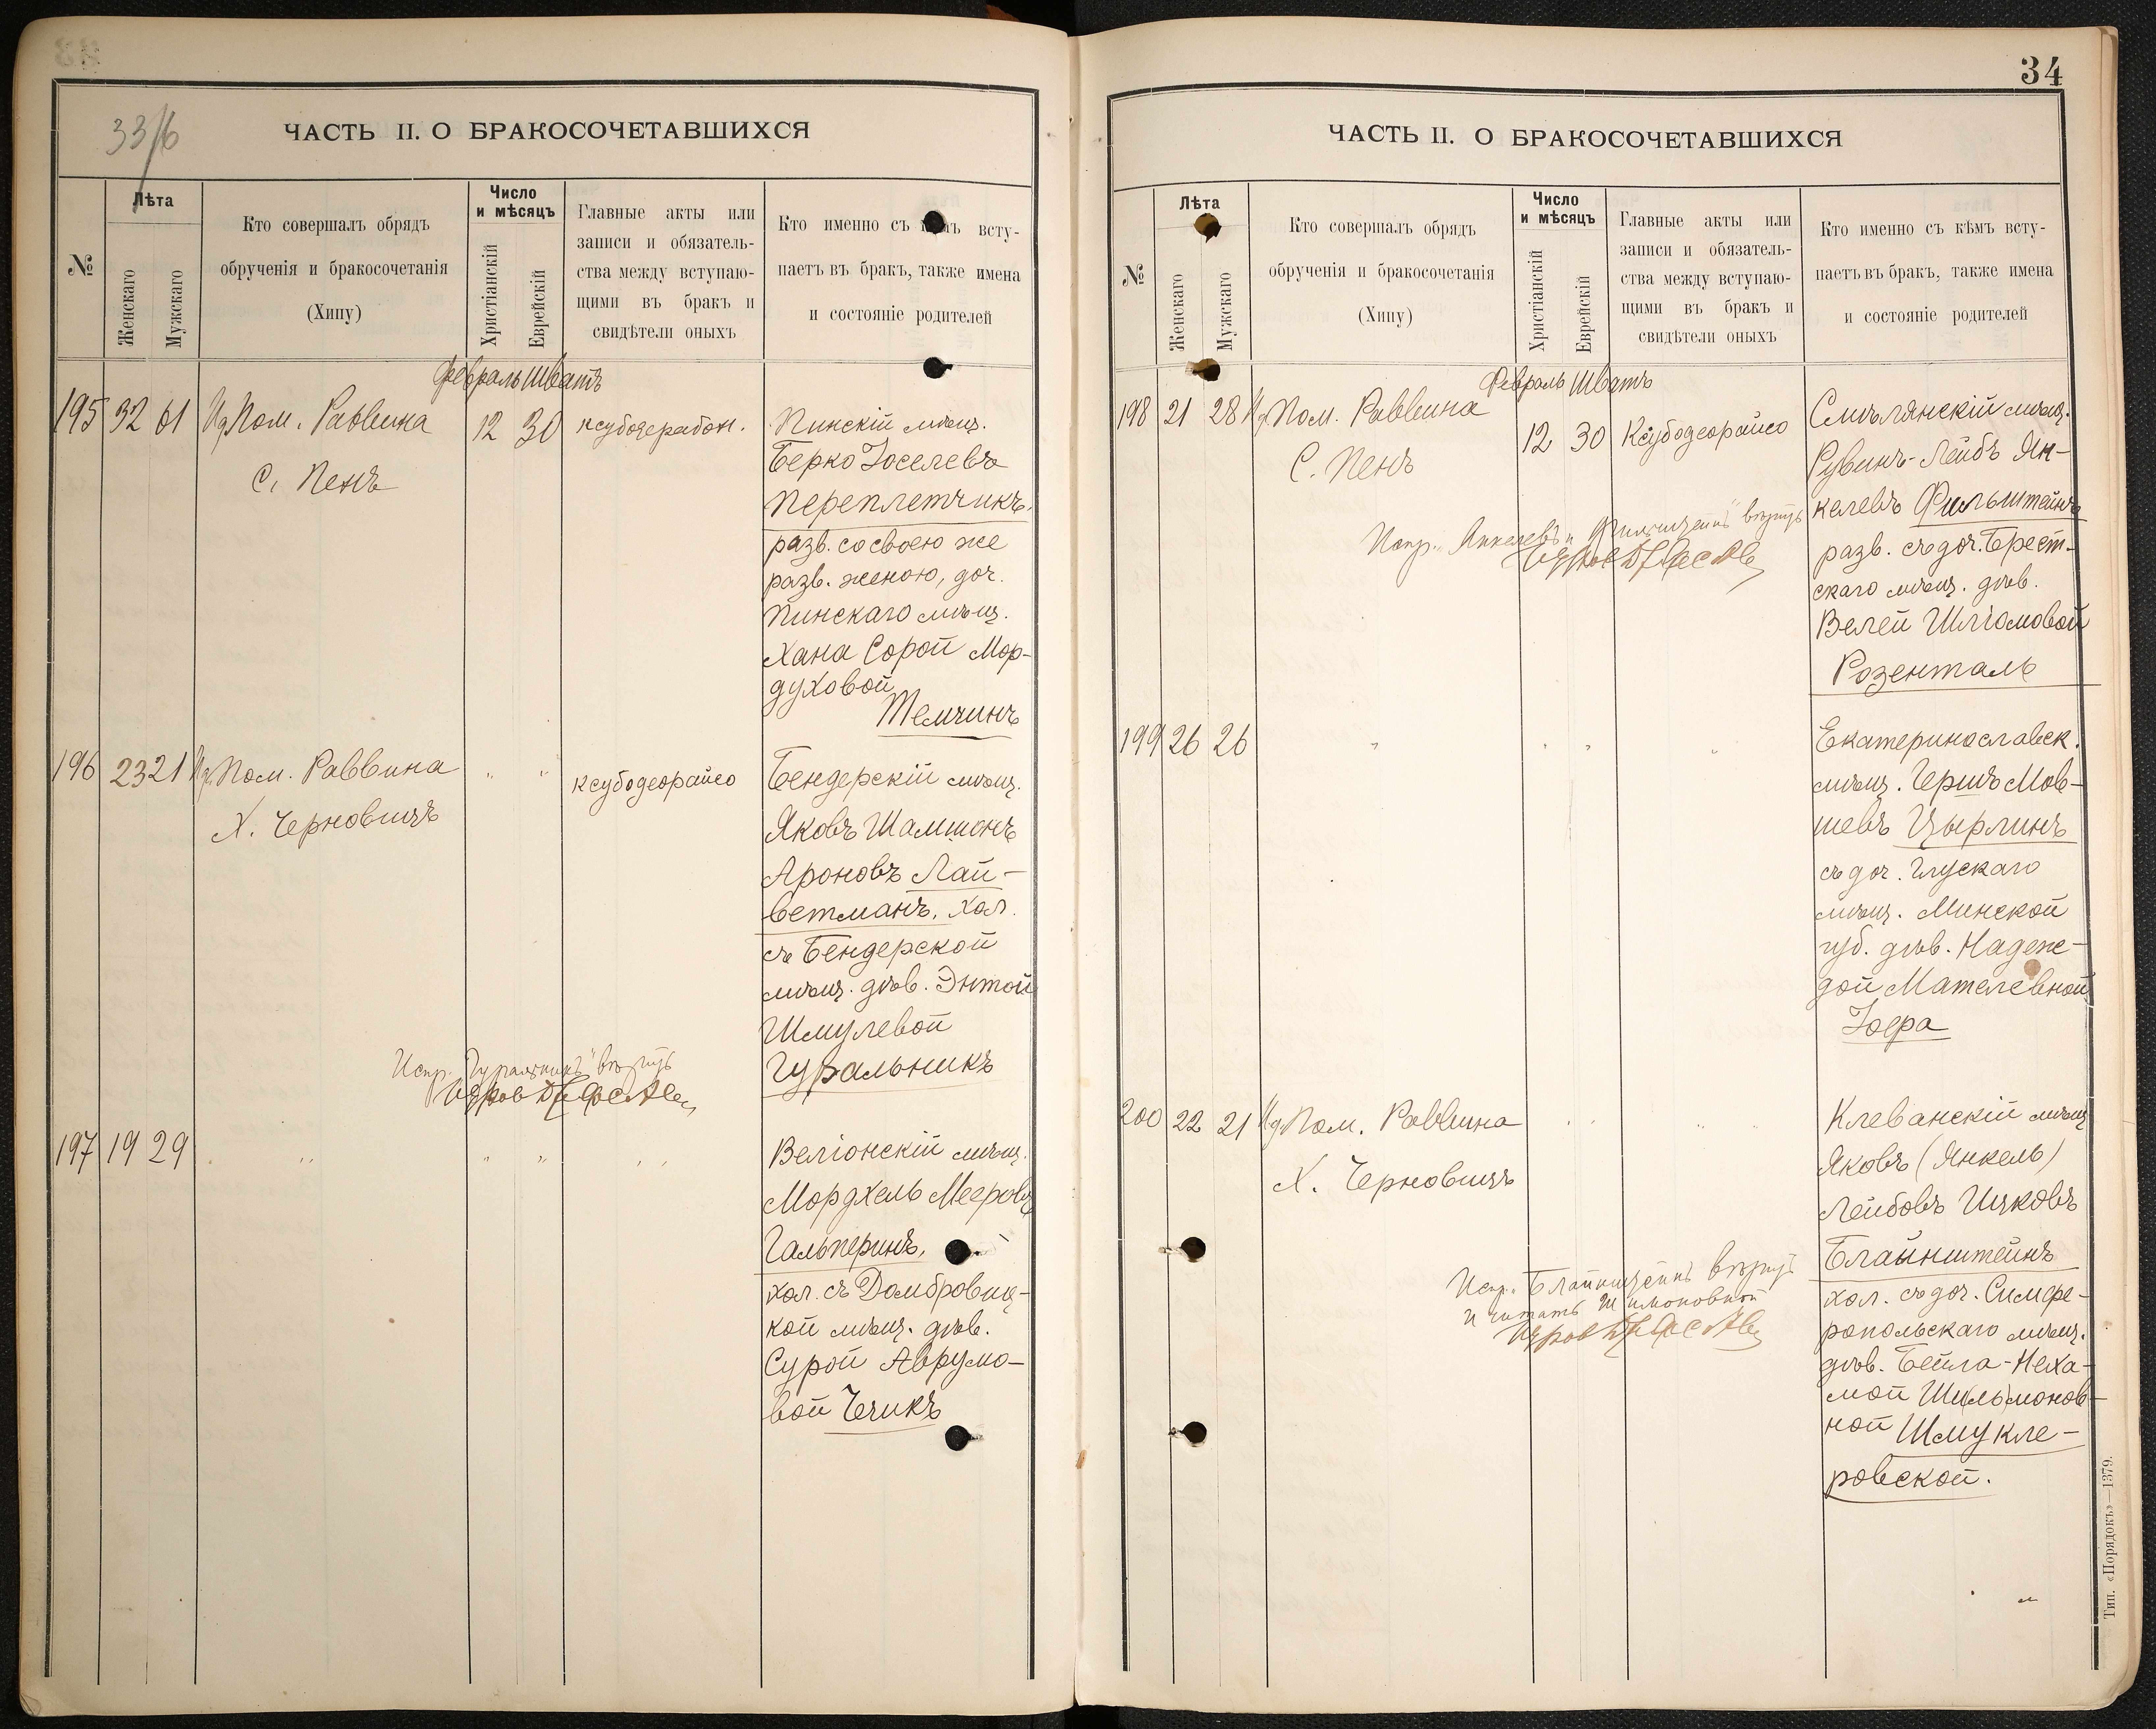 33/б
ЧАСТЬ II. О БРАКОСОЧЕТАВШИХСЯ
№
Лѣта
Женскаго
Мужскаго
Кто совершалъ обрядъ
обрученія и бракосочетанія
(Хипу)
Число
и мѣсяцъ
Христіанскій
Еврейскій
Главные акты или
записи и обязатель-
ства между вступаю-
щими въ бракъ и
свидѣтели оныхъ
Кто именно съ кѣмъ всту-
паетъ въ бракъ, также имена
и состояніе родителей
Февраль Шватъ
195 32 61 Ид Пом. Раввина 12 30
С. Пенъ
Пинскій мѣщ.
Берко Іоселевъ
Переплетчикъ,
разв. со своею же
разв. женою, доч.
Пинскаго мѣщ.
Хана Сорой Мор-
духовой
Темчинъ
196 23 21 Ид Пом. Раввина " " ксубодеорайсо
Х. Черновицъ
Бендерскій мѣщ.
Яковъ Шамшонъ
Ароновъ Лай-
ветманъ, хол.
съ Бендерской
мѣщ. дѣв. Энтой
Шмулевой
Гуральникъ
Испр. "Гуральникъ" вѣрить
197 19 29 " " " "
Веліонскій мѣщ.
Мордхель Мееровъ
Гальперинъ,
хол. съ Домбровиц-
кой мѣщ. дѣв.
Сурой Аврумо-
вой Чечикъ
34
ЧАСТЬ II. О БРАКОСОЧЕТАВШИХСЯ
№
Лѣта
Женскаго
Мужскаго
Кто совершалъ обрядъ
обрученія и бракосочетанія
(Хипу)
Число
и мѣсяцъ
Христіанскій
Еврейскій
Главные акты или
записи и обязатель-
ства между вступаю-
щими въ бракъ и
свидѣтели оныхъ
Кто именно съ кѣмъ всту-
паетъ въ бракъ, также имена
и состояніе родителей
Февраль Шватъ
198 21 28 Ид Пом. Раввина 12 30 Ксубодеорайсо
С. Пенъ
Смѣлянскій мѣщ.
Рувинъ-Лейбъ Ян-
келевъ Фильштейнъ
разв. съ доч. Брест-
скаго мѣщ. дѣв.
Велей Шліомовой
Розенталь
Испр. "Янкелевъ и Фильштейнъ" вѣрить
199 26 26 " " " "
Екатеринославск.
мѣщ. Гершъ Мов-
шевъ Цырлинъ
съ доч. Глускаго
мѣщ. Минской
губ. дѣв. Надеж-
дой Мателевной
Іоера
200 22 21 Ид Пом. Раввина " " " "
Х. Черновицъ
Клеванскій мѣщ
Яковъ (Янкель)
Лейбовъ Ицковъ
Блайнштейнъ
хол. съ доч. Симфе-
ропольскаго мѣщ.
дѣв. Бейла-Неха-
мой Ши(ль)монов-
ной Шмукле-
ровской.
Испр. "Блайнштейнъ" вѣрить
и читать Шимоновной
Тип. «Порядокъ»—1379.